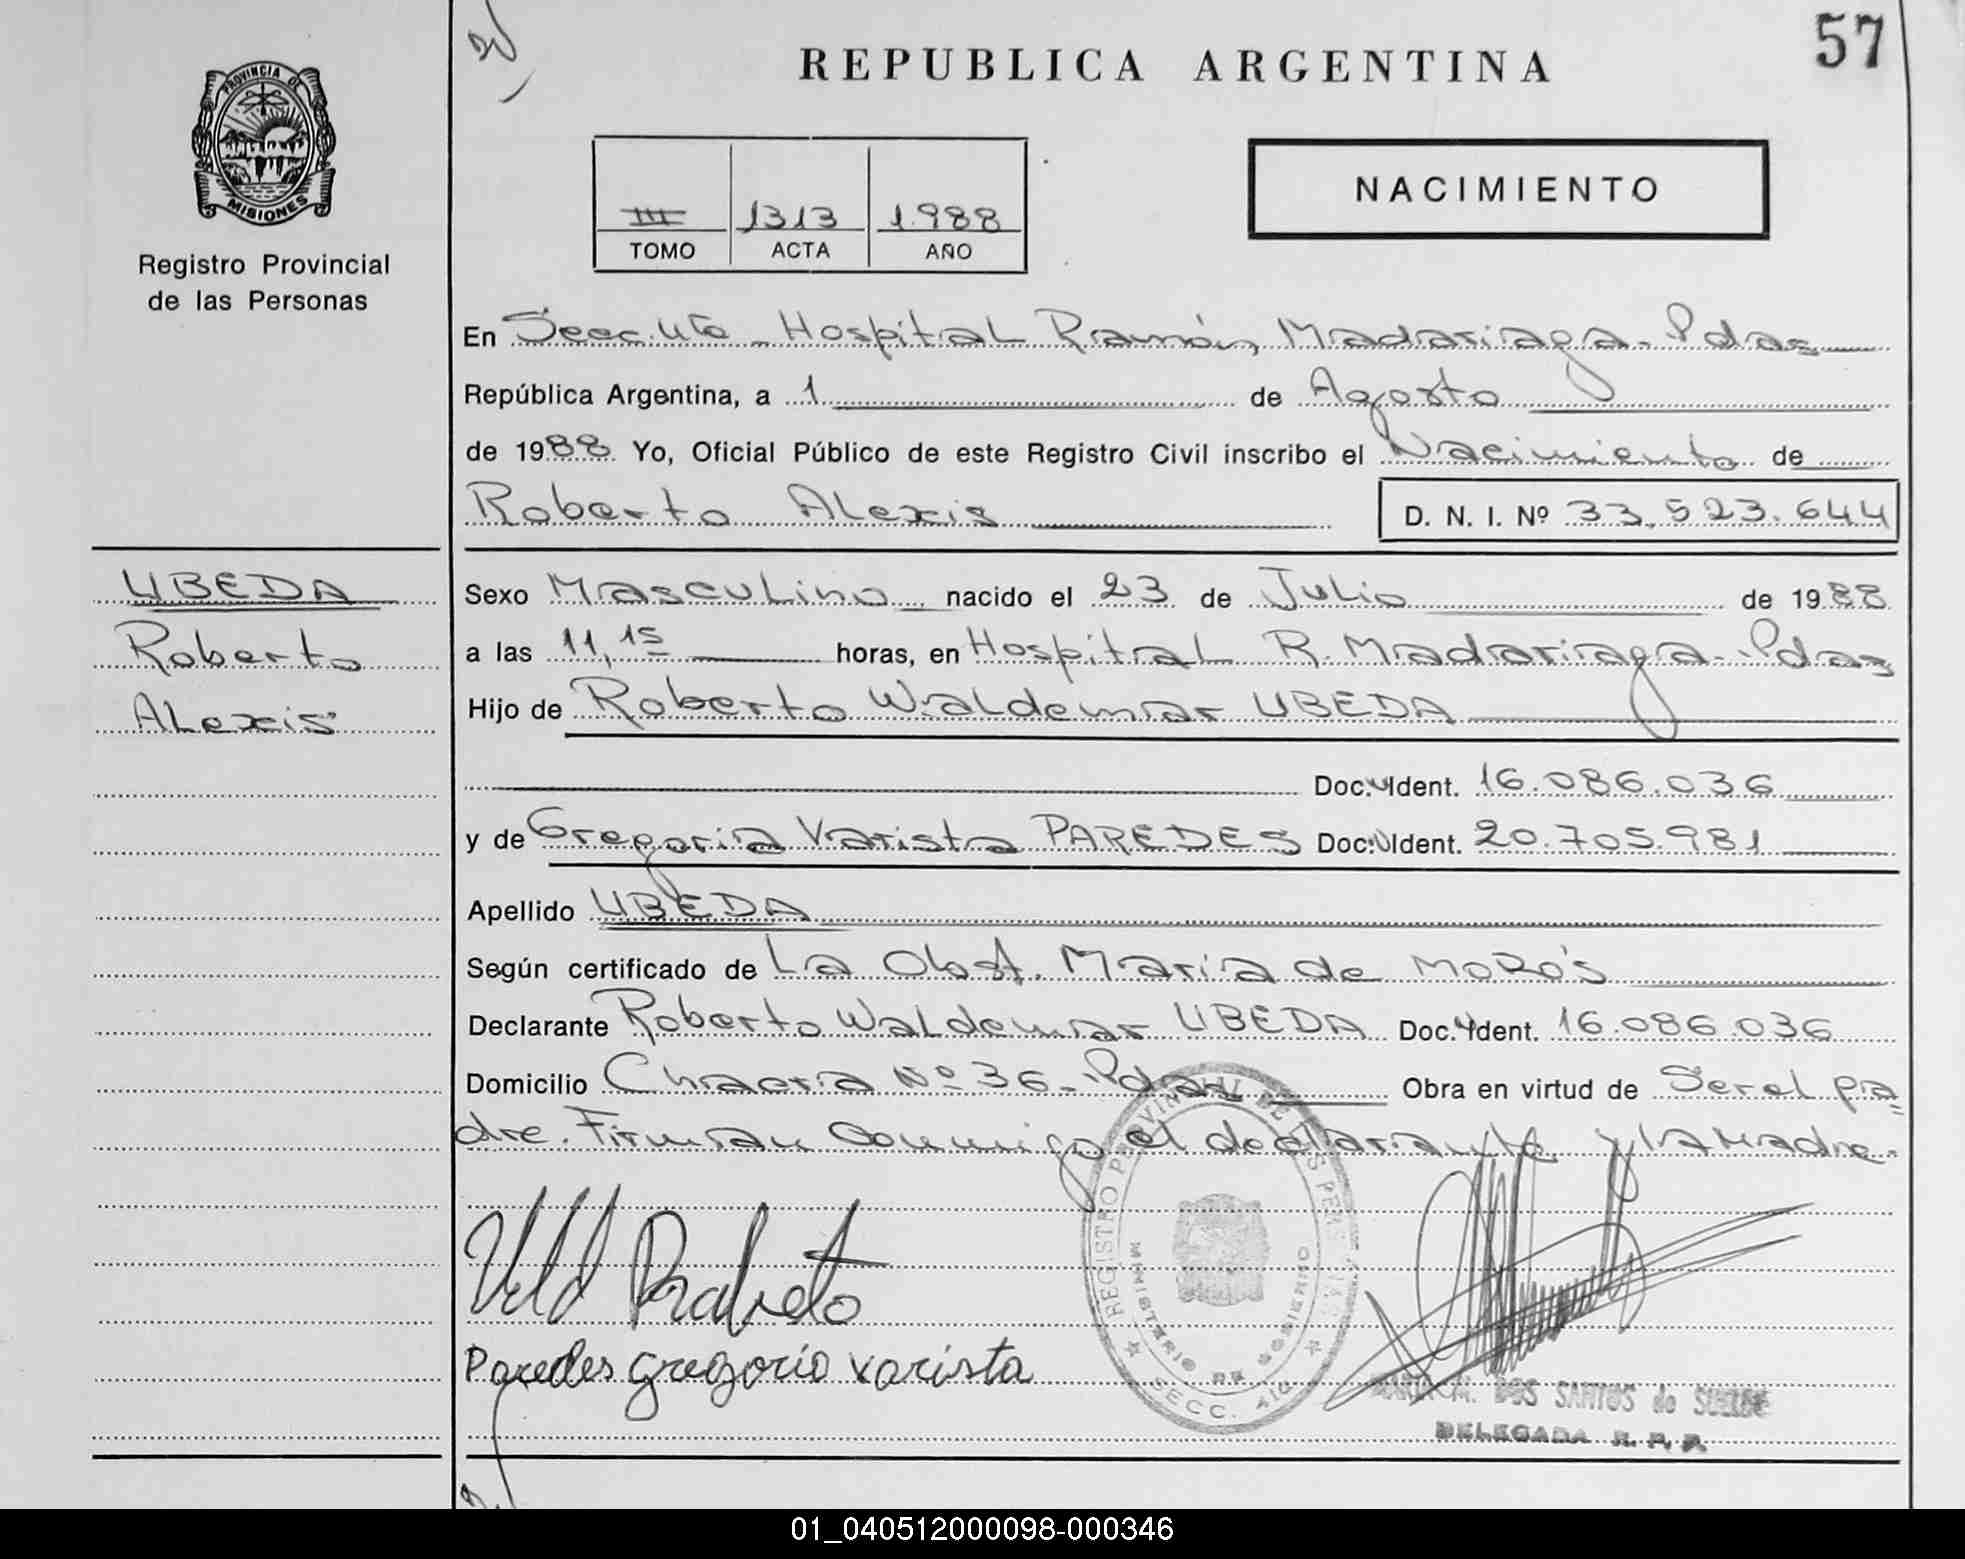 57
REPUBLICA ARGENTINA
PROVINCIA DE
MISIONES
Registro Provincial
de las Personas
NACIMIENTO
III 1313 1.988
TOMO ACTA AÑO
En Secc. 4ta - Hospital Ramón Madariaga - Pdas
República Argentina, a 1 de Agosto
de 1988 Yo, Oficial Público de este Registro Civil inscribo el Nacimiento de
Roberto Alexis D. N. I. Nº 33.523.644
UBEDA
Roberto
Alexis
Sexo Masculino nacido el 23 de Julio de 1988
a las 11,15 horas, en Hospital R. Madariaga - Pdas
Hijo de Roberto Waldemar UBEDA
Doc. Ident. 16.086.036
y de Gregoria Varista PAREDES Doc. Ident. 20.705.981
Apellido UBEDA
Según certificado de La Obst. María de
Declarante Roberto Waldemar UBEDA Doc. Ident. 16.086.036
Domicilio Chacra Nº 36 - Pdas Obra en virtud de Ser el pa=
dre. Firman conmigo el declarante y la Madre.-
Paredes Gregoria varista
REGISTRO PROVINCIAL DE LAS PERSONAS
MINISTERIO DE GOBIERNO
SECC. 4ta
MARIA M. DOS SANTOS de
DELEGADA R. P. P.
01_040512000098-000346